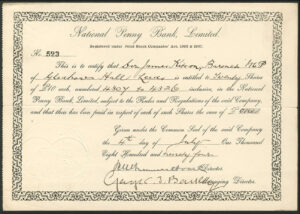 National Penny Bank, Limited.
Registered under Joint Stock Companies' Acts, 1862 & 1867.
No. 593
This is to certify that Sir James Kitson, Baronet M.P.
of Gledhow Hall Leeds is entitled to Twenty Shares
of each, numbered 4307 to 4326 inclusive, in the National
Penny Bank, Limited, subject to the Rules and Regulations of the said Company,
and that there has been paid in respect of each of such Shares the sum of
Given under the Common Seal of the said Company
the 4th day of July One Thousand
Eight Hundred and ninety four
Director.
George Managing Director.